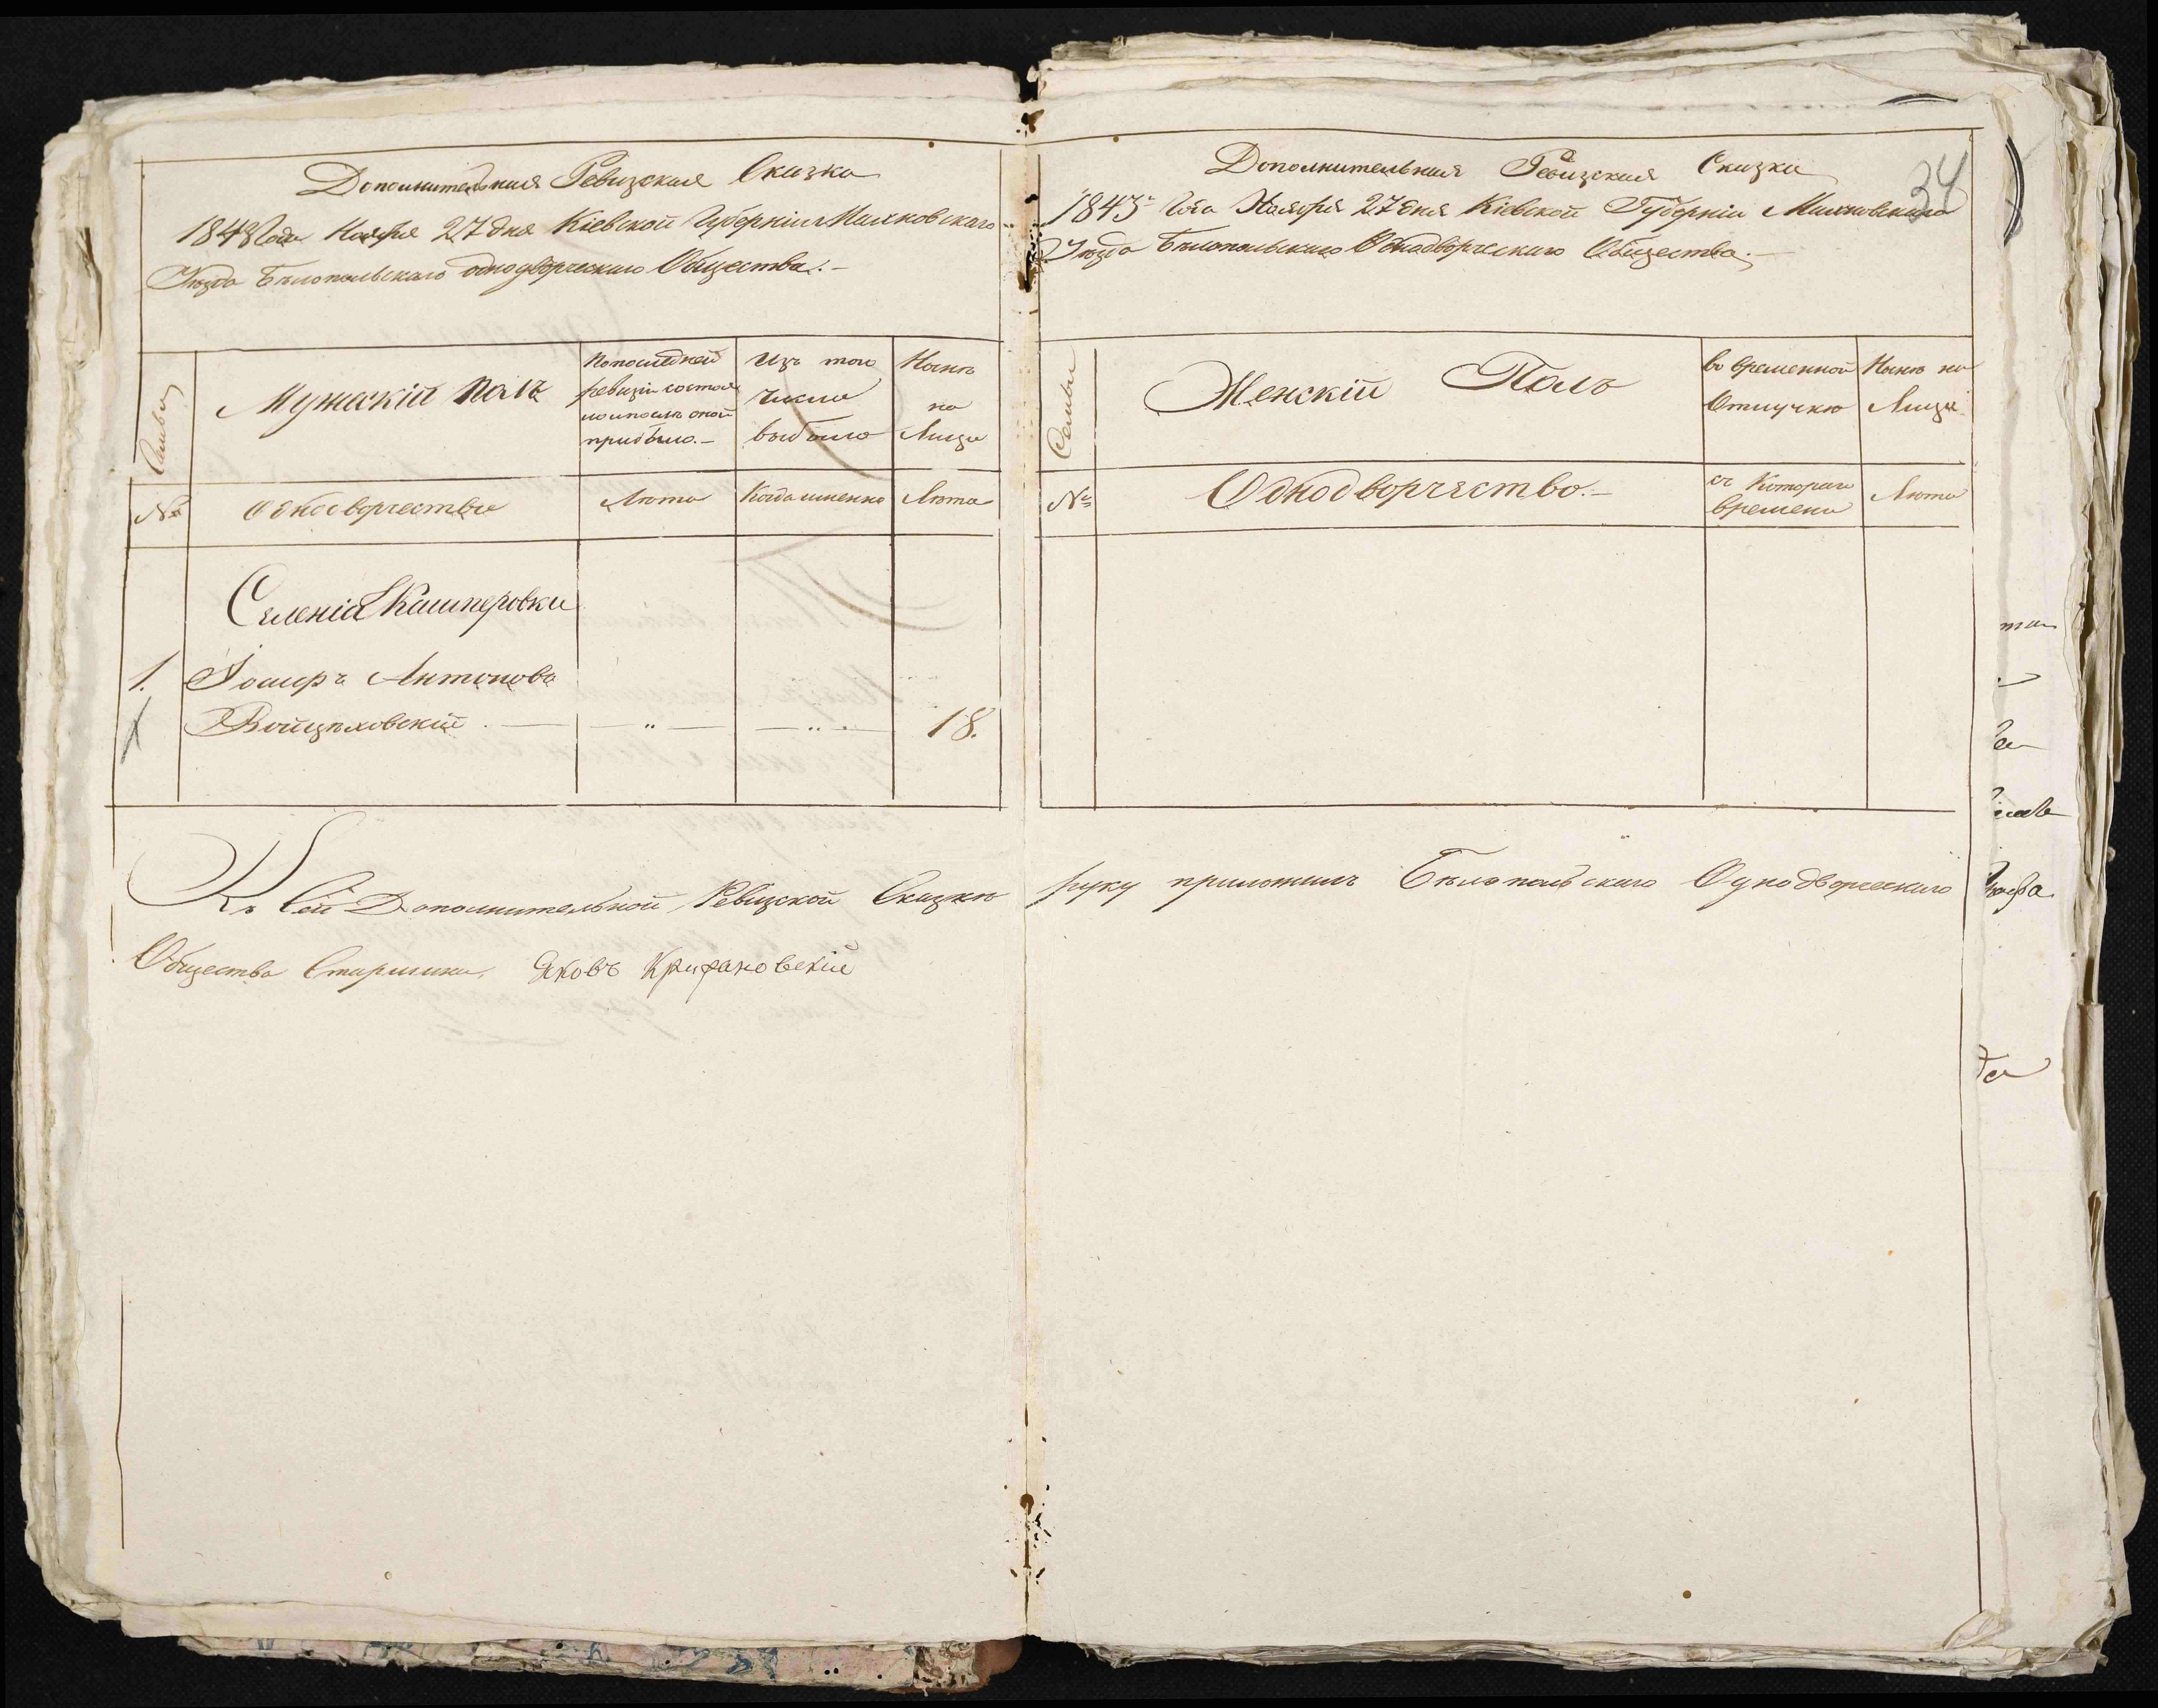 Дополнительная Ревизская Сказка
1843 Года Ноября 27 дня Кіевской Губерніи Махновскаго
Уѣзда Бѣлопольскаго однодворческаго Общества.
Семьи
Мужескій полъ
По последней
ревизіи состоя
ло и послѣ оной
прибыло.
Изъ того
числа
выбыло
Нынѣ
на
Лицо
№
Однодворчество
Лѣта
Когда именно
Лѣта
Селенія Кашперовки
1.
Іосифъ Антоновъ
Войцѣховскій
18.
Къ Сей Дополнительной Ревизской Сказкѣ
Общества Старшина Яковъ
34
Дополнительная Ревизская Сказка
1843 Года Ноября 27 дня Кіевской Губерніи Махновскаго
Уѣзда Бѣлопольскаго Однодворческаго Общества.
Семьи
Женскій Полъ
во временной
Отлучкѣ
Нынѣ на
Лицо
№
Однодворчество.
съ Котораго
времени
Лѣта
руку приложилъ Бѣлопольскаго Однодворческаго